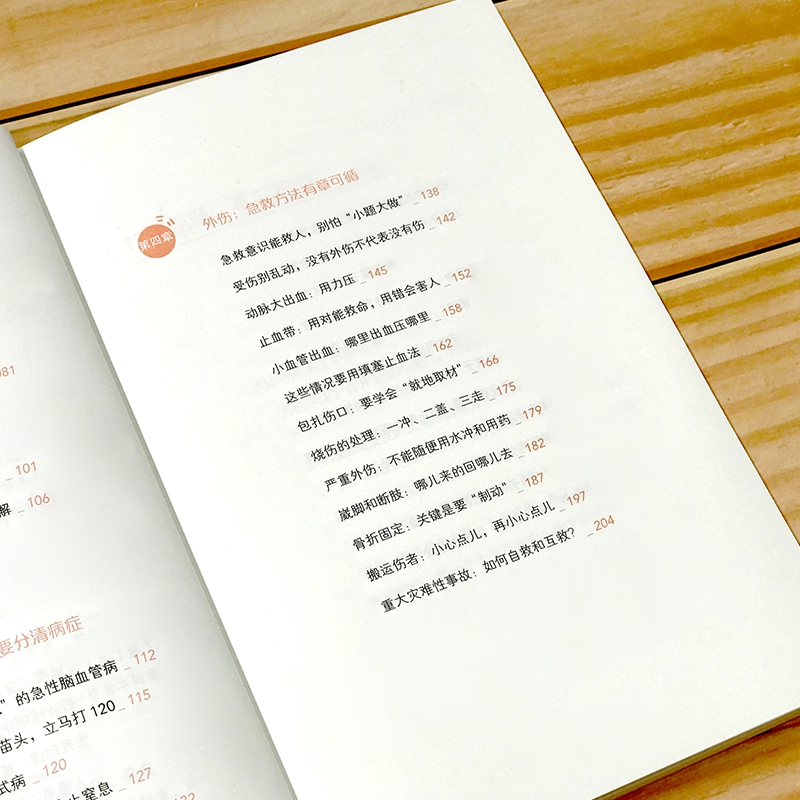 081
101
解 106
要分清病症
”的急性脑血管病 112
苗头，立马打 120_ 115
式病 _120
止窒息 _127
132
第四章
外伤：急救方法有章可循
急救意识能救人，别怕“小题大做” _138
受伤别乱动，没有外伤不代表没有伤 _142
动脉大出血：用力压 _145
止血带：用对能救命，用错会害人 _152
小血管出血：哪里出血压哪里 _158
这些情况要用填塞止血法 _162
包扎伤口：要学会“就地取材” _166
烧伤的处理：一冲、二盖、三走 _175
严重外伤：不能随便用水冲和用药 _179
崴脚和断肢：哪儿来的回哪儿去 _182
骨折固定：关键是要“制动” _187
搬运伤者：小心点儿，再小心点儿 _197
重大灾难性事故：如何自救和互救？ _204